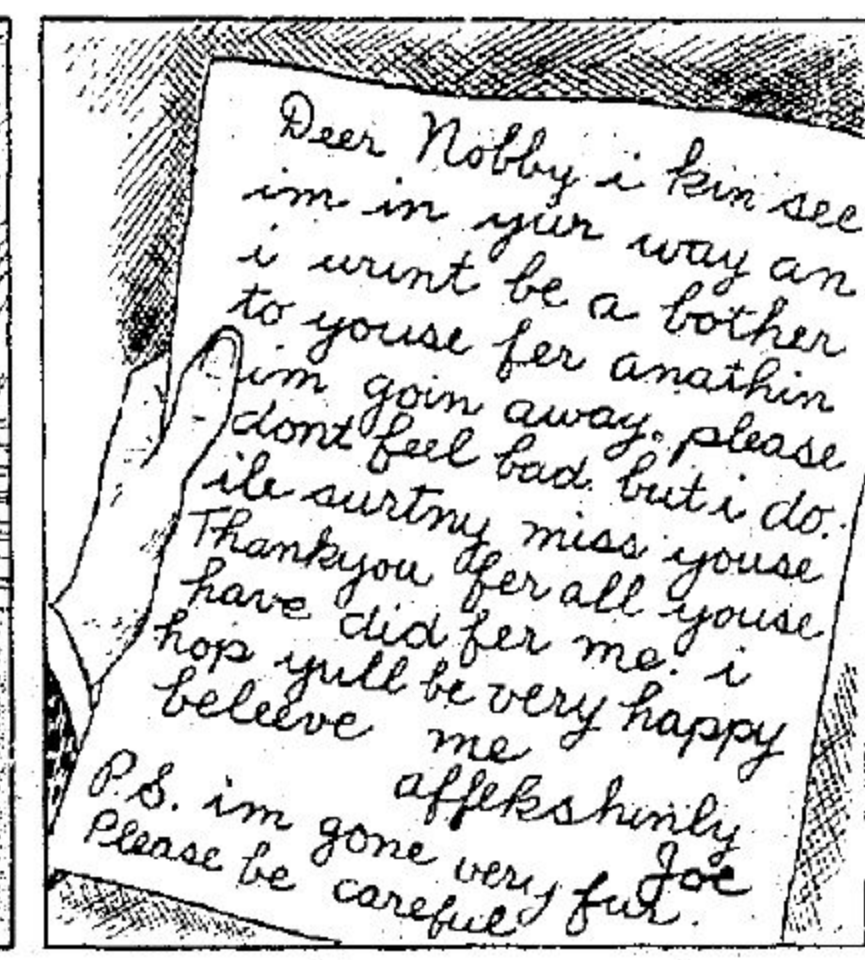 Deer Nobby i kin see
im in yur way an
i wunt be a bother
to youse fer anathin
im goin away. please
dont feel bad. but i do.
ile surtny miss youse
Thankyou fer all youse
have did fer me. i
hop yull be very happy
beleeve me
affekshunly
Joe
P.S. im gone very fur.
Please be careful